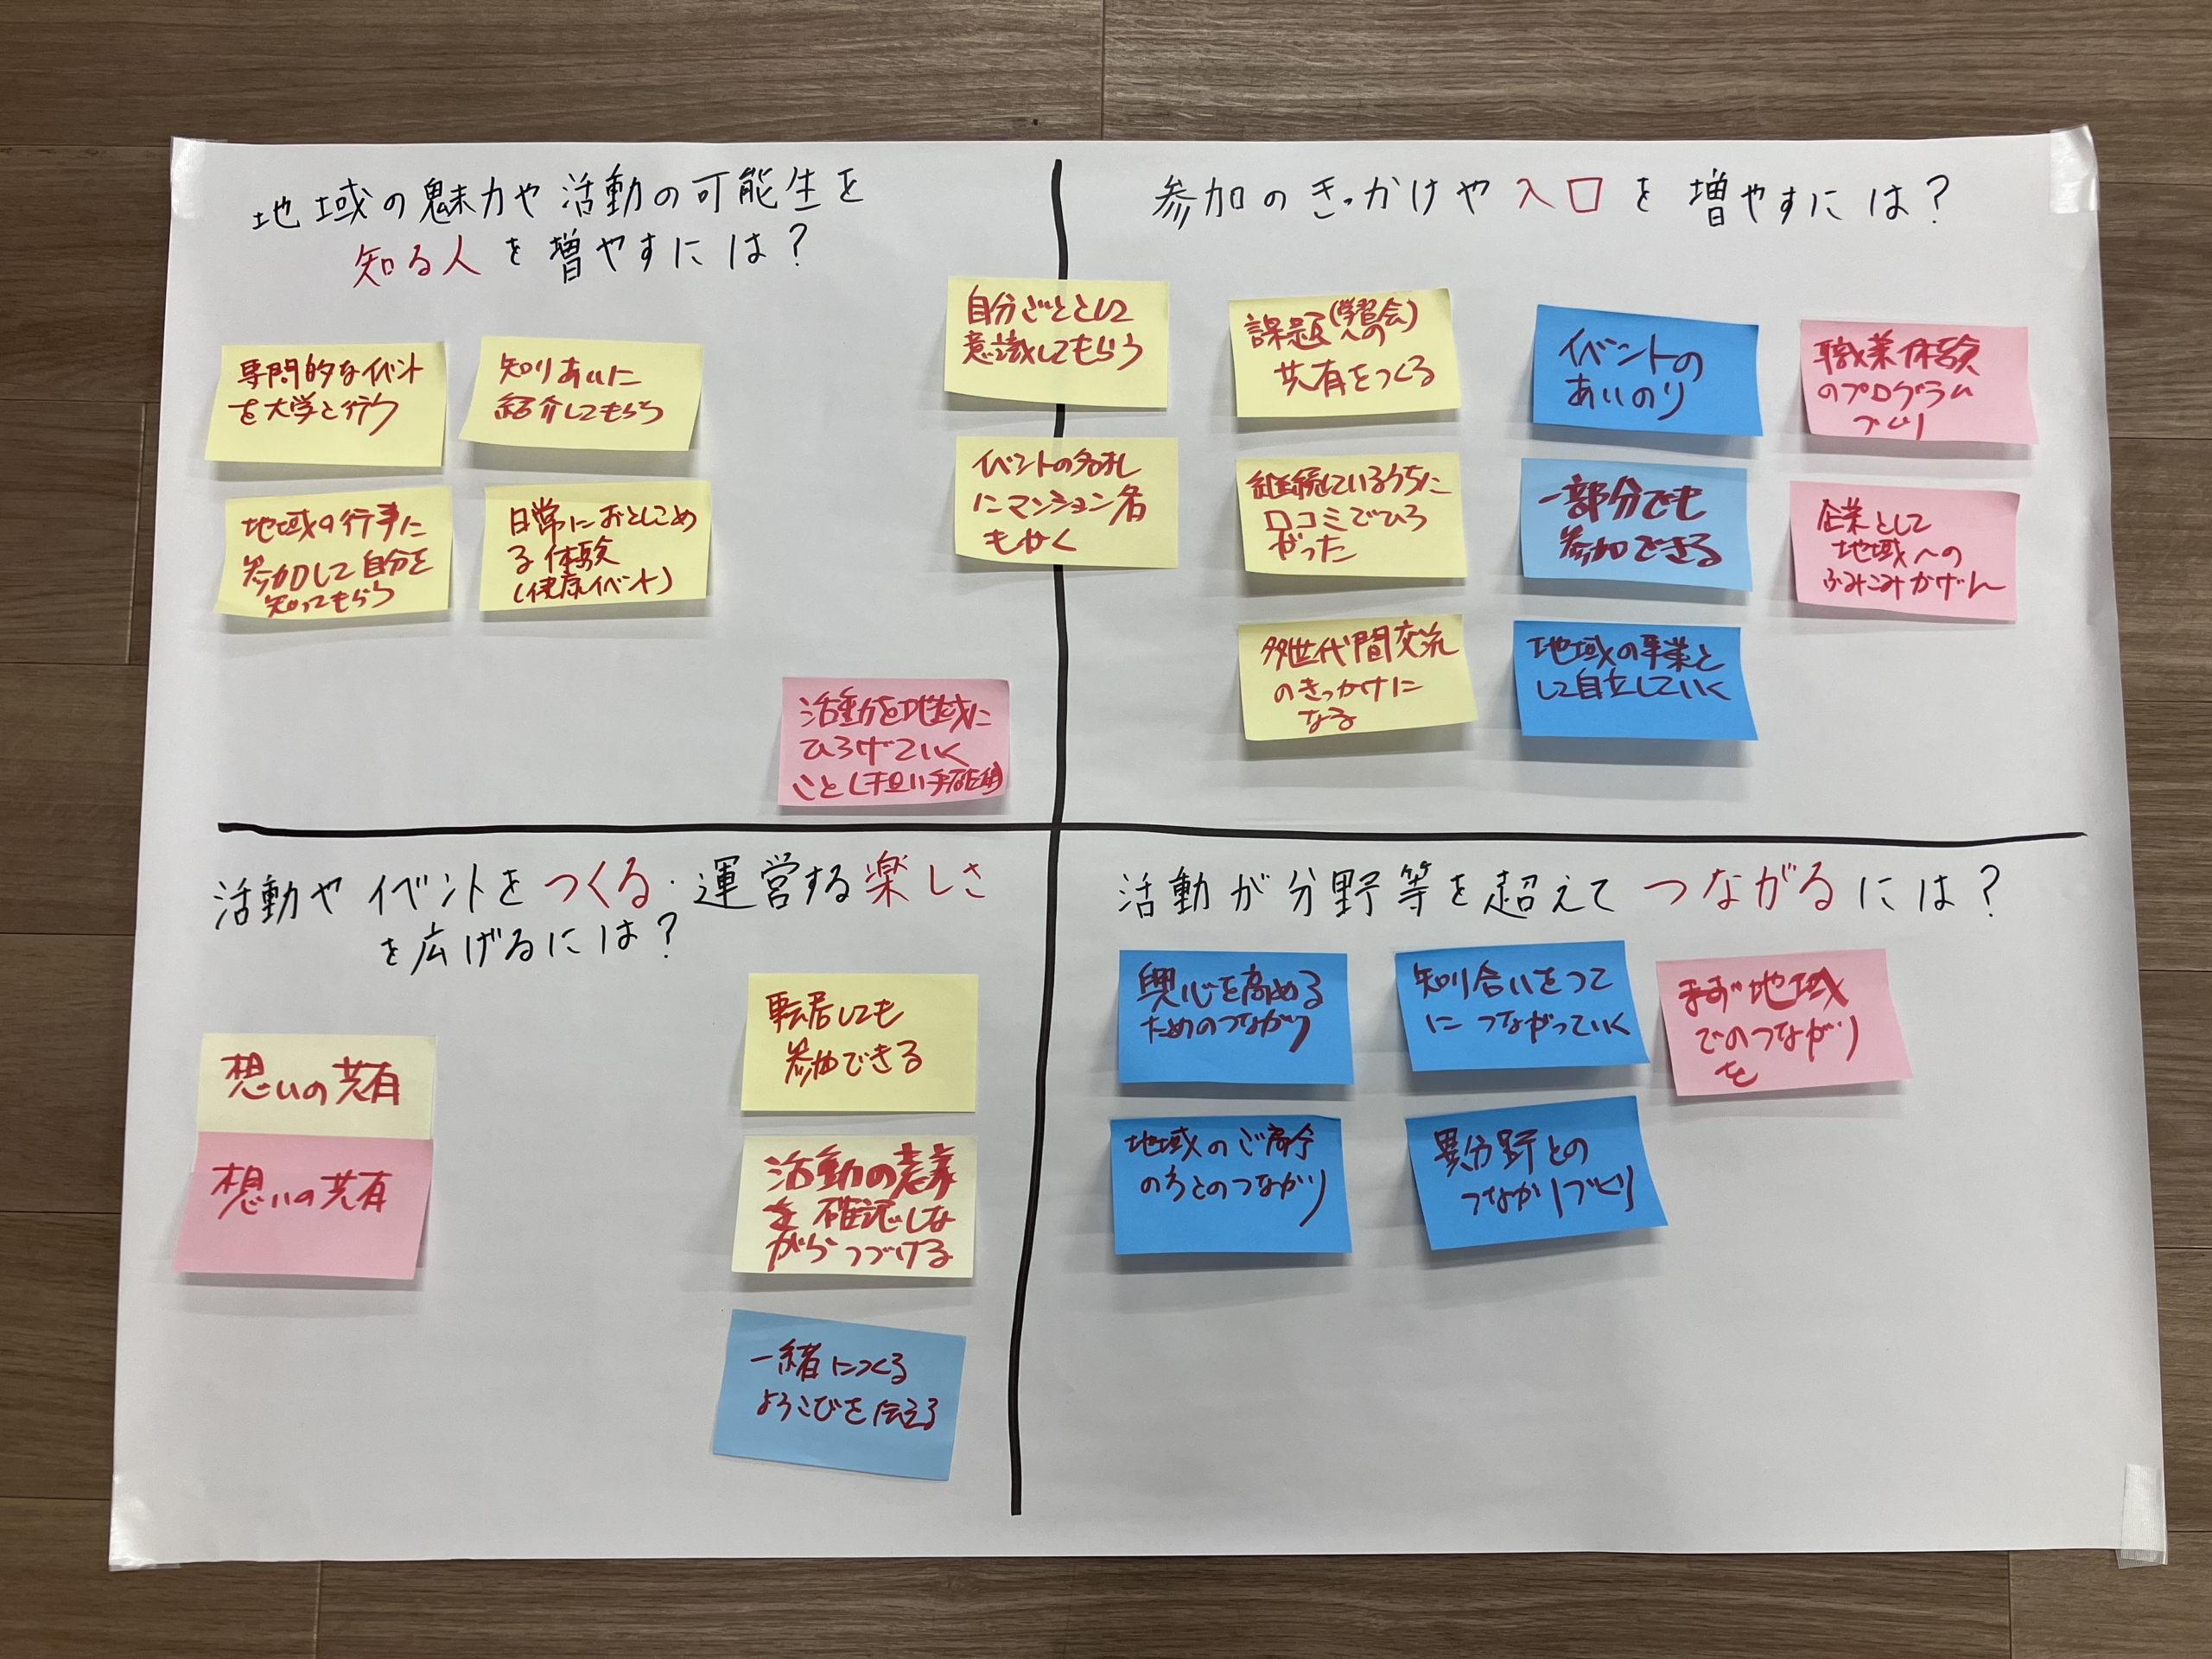 地域の魅力や活動の可能生を
知る人を増やすには?
専門的なイベント
を大学と行う
知りあいに
紹介してもらう
地域の行事に
参加して自分を
知ってもらう
日常におとしこめ
る体験
(健康イベント)
活動を地域に
ひろげていく
自分ごととして
意識してもらう
イベントの名札
にマンション名
もかく
参加のきっかけや入口を増やすには?
課題(学習会)への
共有をつくる
継続しているうちに
口コミでひろ
がった
多世代間交流
のきっかけに
なる
イベントの
あいのり
一部分でも
参加できる
地域の事業と
して自立していく
職業体験
のプログラム
づくり
企業として
地域への
ふみこみかげん
活動やイベントをつくる・運営する楽しさ
を広げるには?
想いの共有
想いの共有
転居しても
参加できる
活動の意義
を確認しな
がらつづける
一緒につくる
よろこびを伝える
活動が分野等を超えてつながるには?
興心を高める
ためのつながり
知り合いをつて
につながっていく
まず地域
でのつながり
を
地域のご高令
の方とのつながり
異分野との
つながりづくり